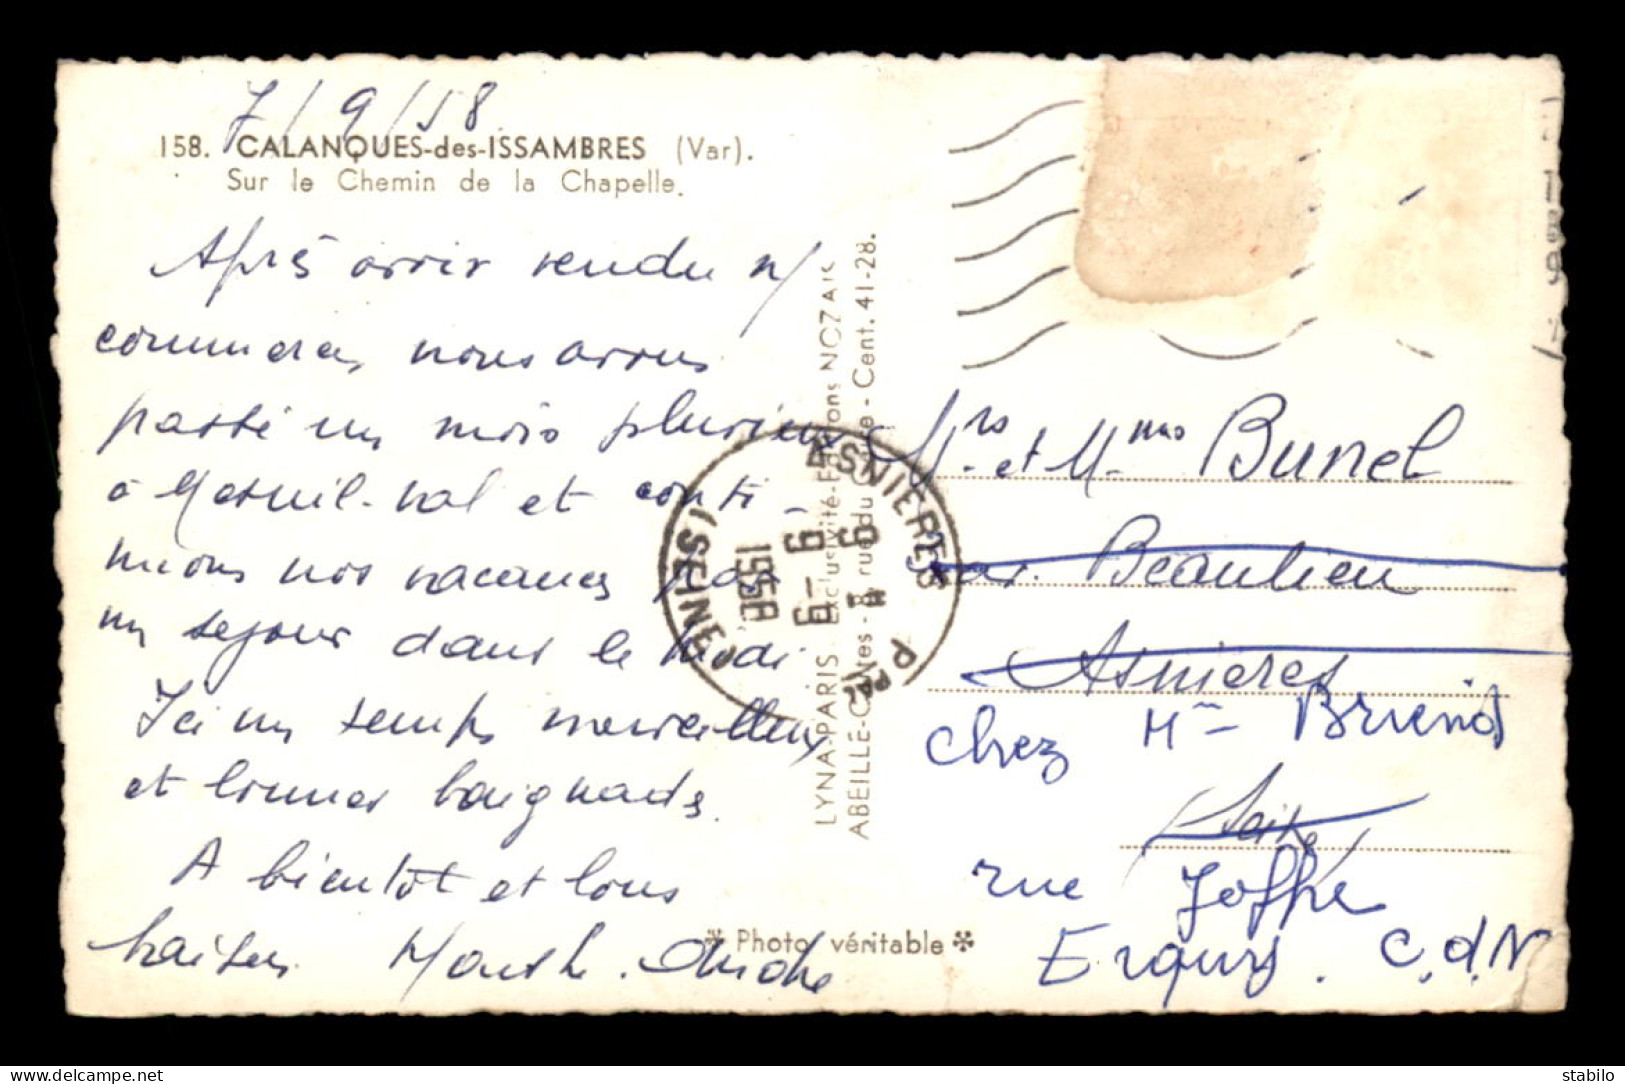 7/9/58
158. CALANQUES-des-ISSAMBRES (Var).
Sur le Chemin de la Chapelle.
Après avoir vendu n/
commerce, nous avons
passé un mois pluvieux
à Mesnil-Val et conti-
nuons nos vacances par
un sejour dans le Midi.
Ici un temps merveilleux
et bonnes baignades.
A bientôt et bons
baisers
LYNA-PARIS Exclusivité
ABEILLE-Cartes - 8, rue du - Cent. 41-28.
ASNIERES PPAL
9 H
9-9
1958
(SEINE)
Mrs et Mme Bunel
av. Beaulieu
Asnières
chez Mme Briend
(Seine)
rue Joffre
Erquy. C.d.N
* Photo véritable *
stabilo